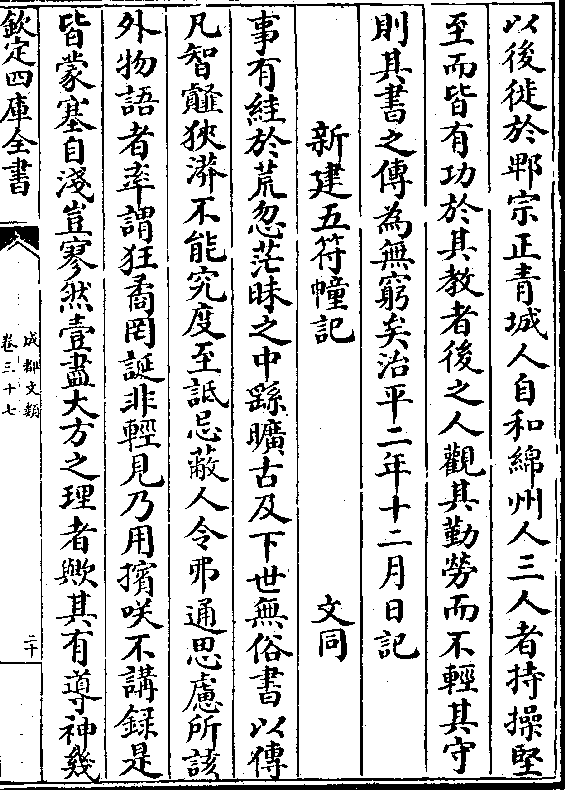 以後徙於郫宗正青城人自和綿州人三人者持操堅
至而皆有功於其教者後之人觀其勤勞而不輕其守
則其書之傳為無窮矣治平二年十二月日記
新建五符幢記
文同
事有絓於荒忽茫昧之中繇曠古及下世無俗書以傳
凡智龊狹漭不能究度至詆忌蔽人令弗通思慮所該
外物語者率謂狂矞罔誕非輕見乃用擯咲不講錄是
皆蒙塞自淺豈寥然壹盡大方之理者歟其有導神幾
欽定四庫全書
成都文類
卷三十七
二十